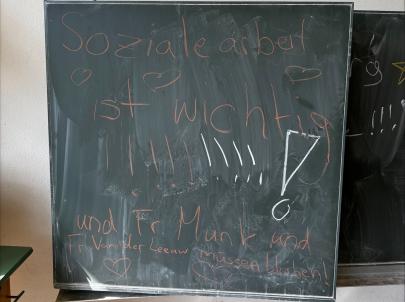 Soziale arbeit
ist wichtig
!!!!!!!!!!!
und Fr Munk und
Fr Van der Leeuw müssen bleiben!